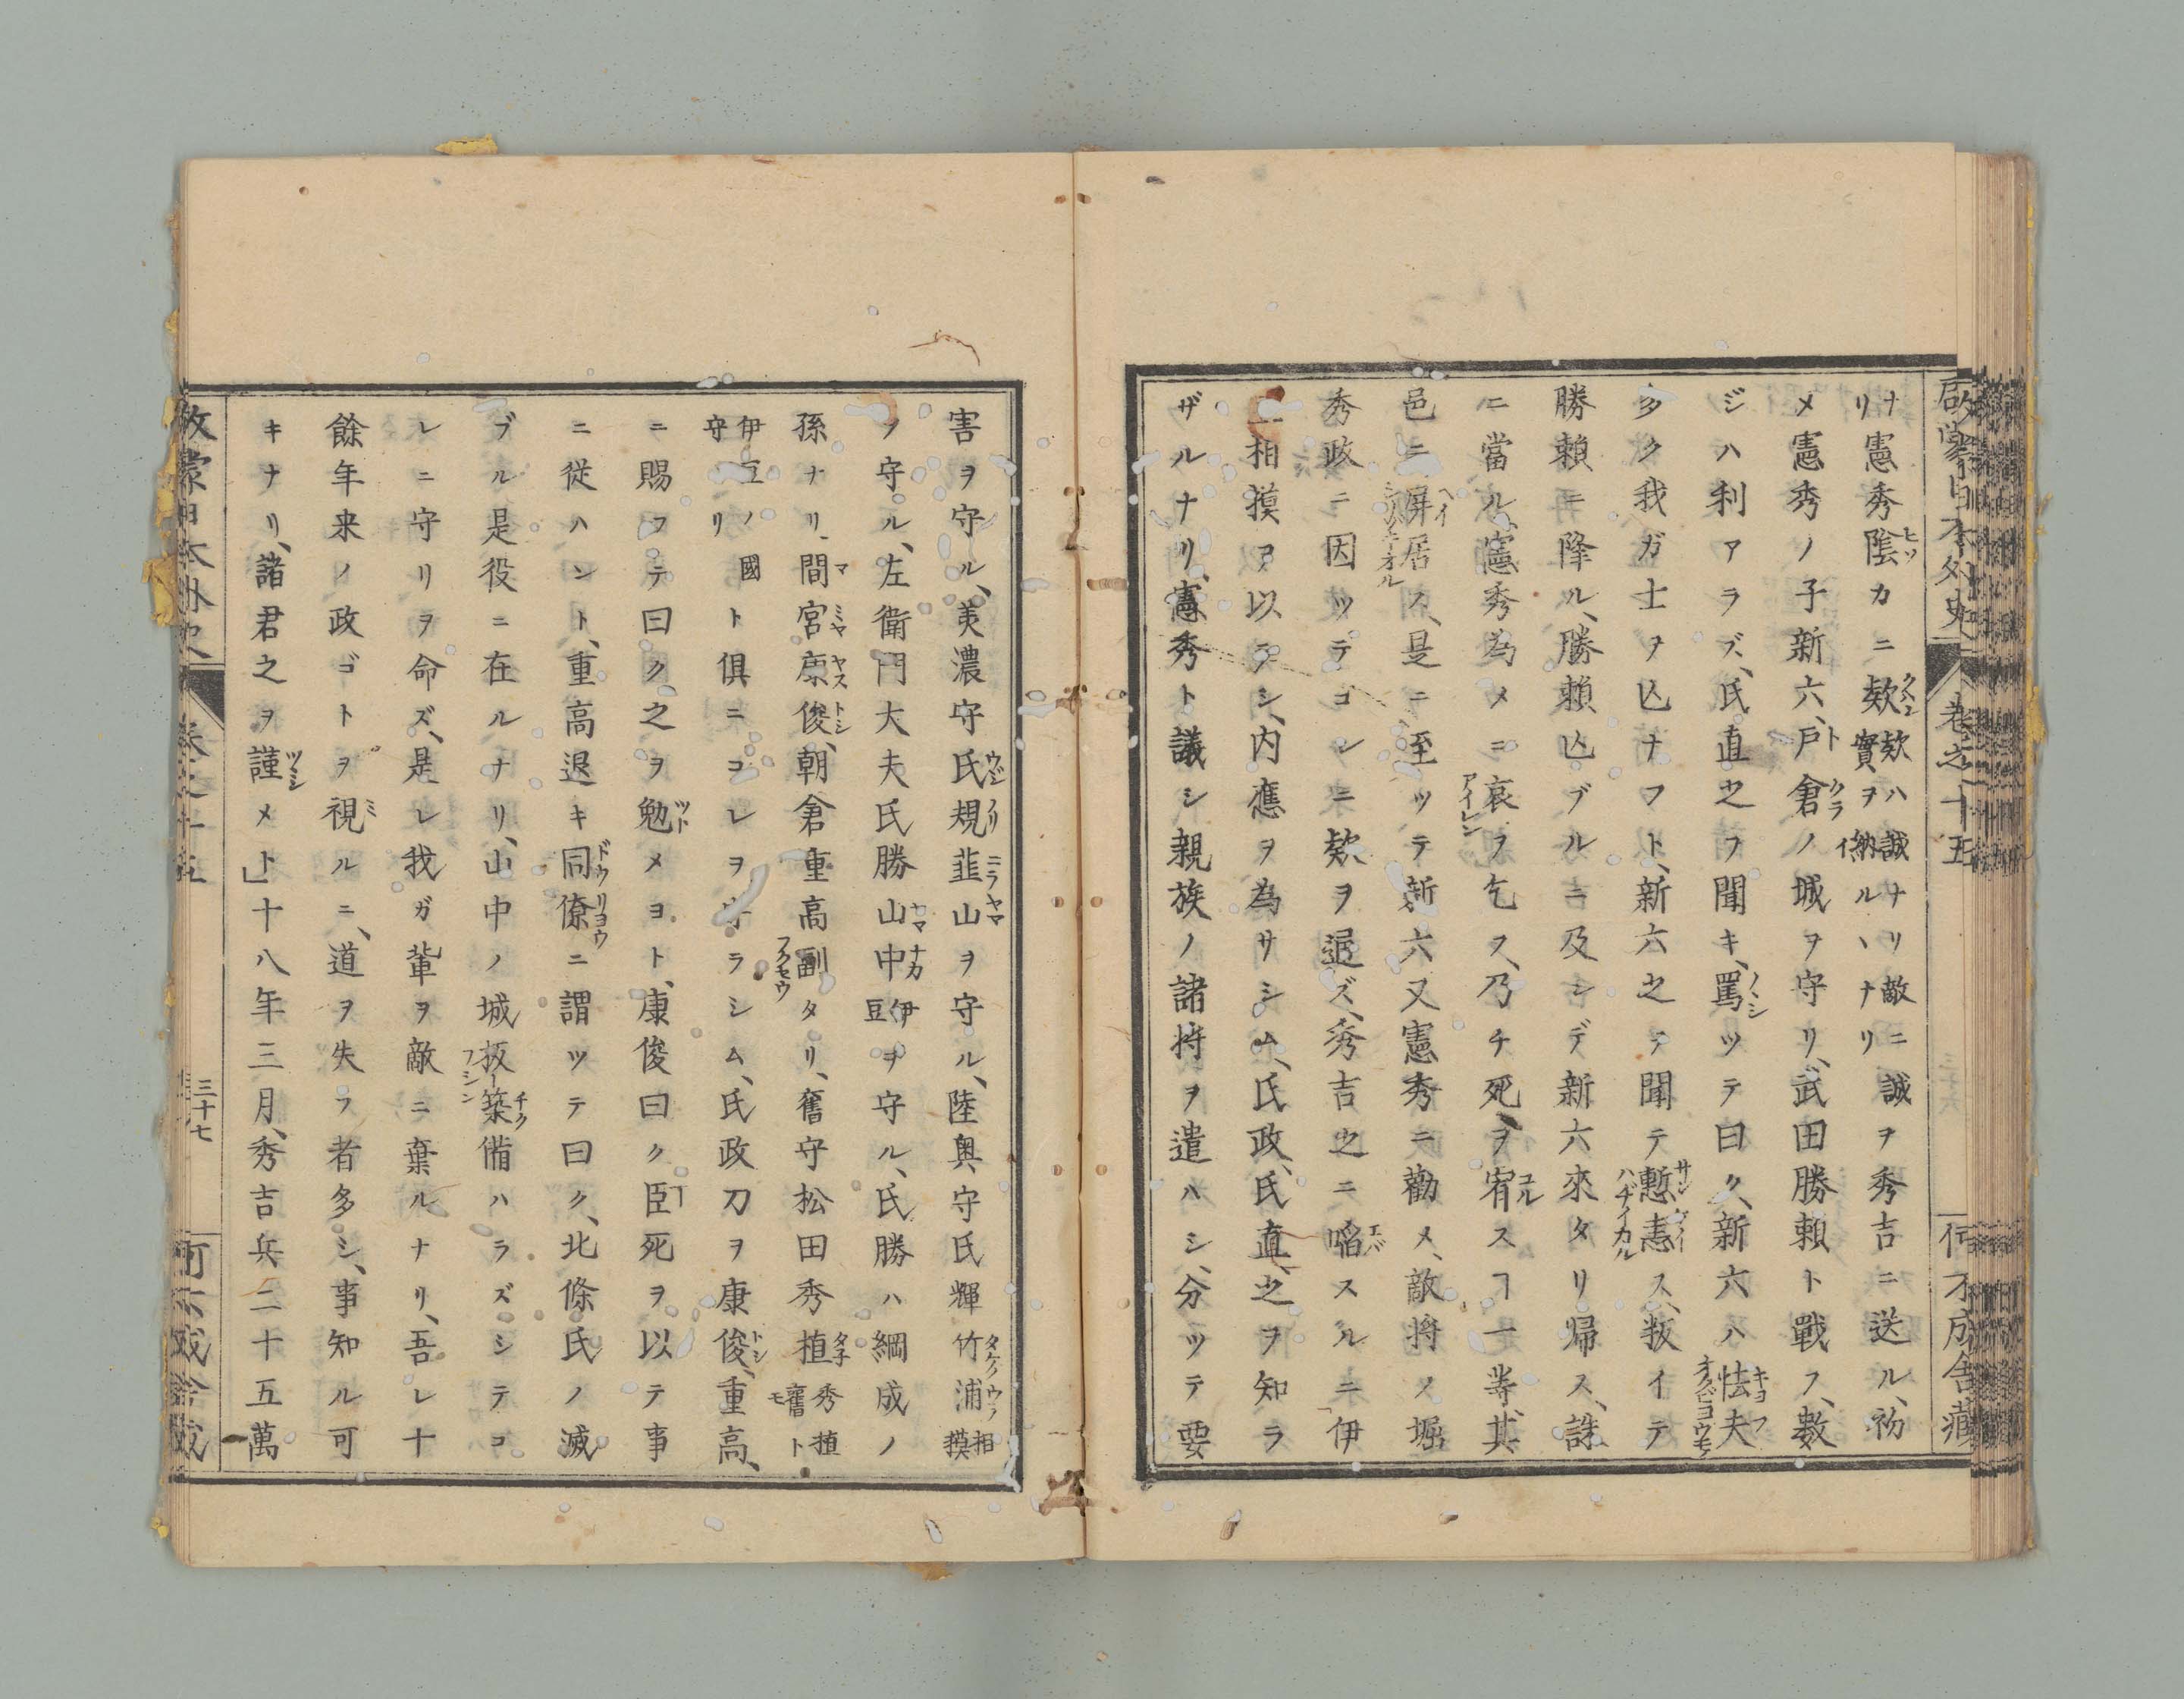 啟蒙日本外史 卷之十五 何不成舎藏
ナリ憲秀陰カニ欵欵ハ誠ナリ敵ニ誠ヲ秀吉ニ送ル、初
實ヲ納ルヽナリ
メ憲秀ノ子新六、戸倉ノ城ヲ守リ、武田勝頼ト戰フ、數
ジハ利アラズ、氏直之ヲ聞キ、罵ツテ曰ク、新六ハ怯夫
多ク我ガ士ヲ亡ナフト、新六之ヲ聞テ慙恚ス、叛イテ
勝頼ニ降ル、勝頼亡ブルニ及シデ新六來タリ帰ス、誅
ニ當ル、憲秀為メニ哀ヲ乞ス、乃チ死ヲ宥スヿ一等、其
邑ニ屏居ス、是ニ至ツテ新六又憲秀ニ勸メ、敵將堀
秀政ニ因ツテコレニ欵ヲ通ズ、秀吉之ニ啗スルニ伊
二相摸ヲ以テシ、内應ヲ為サシム、氏政、氏直、之ヲ知ラ
ザルナリ、憲秀ト議シ親族ノ諸將ヲ遣ハシ、分ツテ要
害ヲ守ル、美濃守氏規韮山ヲ守ル、陸奥守氏輝竹浦相摸
ヲ守ル、左衛門大夫氏勝山中伊豆ヲ守ル、氏勝ハ綱成ノ
孫ナリ、間宮康俊、朝倉重高副タリ、舊守松田秀植秀植舊トモ
伊豆ノ國守リト倶ニコレヲ守ラシム、氏政刀ヲ康俊、重高、
ニ賜フテ曰ク、之ヲ勉メヨト、康俊曰ク臣死ヲ以テ事
ニ従ハント、重高退キ同僚ニ謂ツテ曰ク、北條氏ノ滅
ブル是役ニ在ルナリ、山中ノ城板築備ハラズシテコ
レニ守リヲ命ズ、是レ我ガ輩ヲ敵ニ棄ルナリ、吾レ十
餘年来ノ政ゴトヲ視ルニ、道ヲ失フ者多シ、事知ル可
キナリ、諸君之ヲ謹メト」十八年三月、秀吉兵二十五萬
三十七